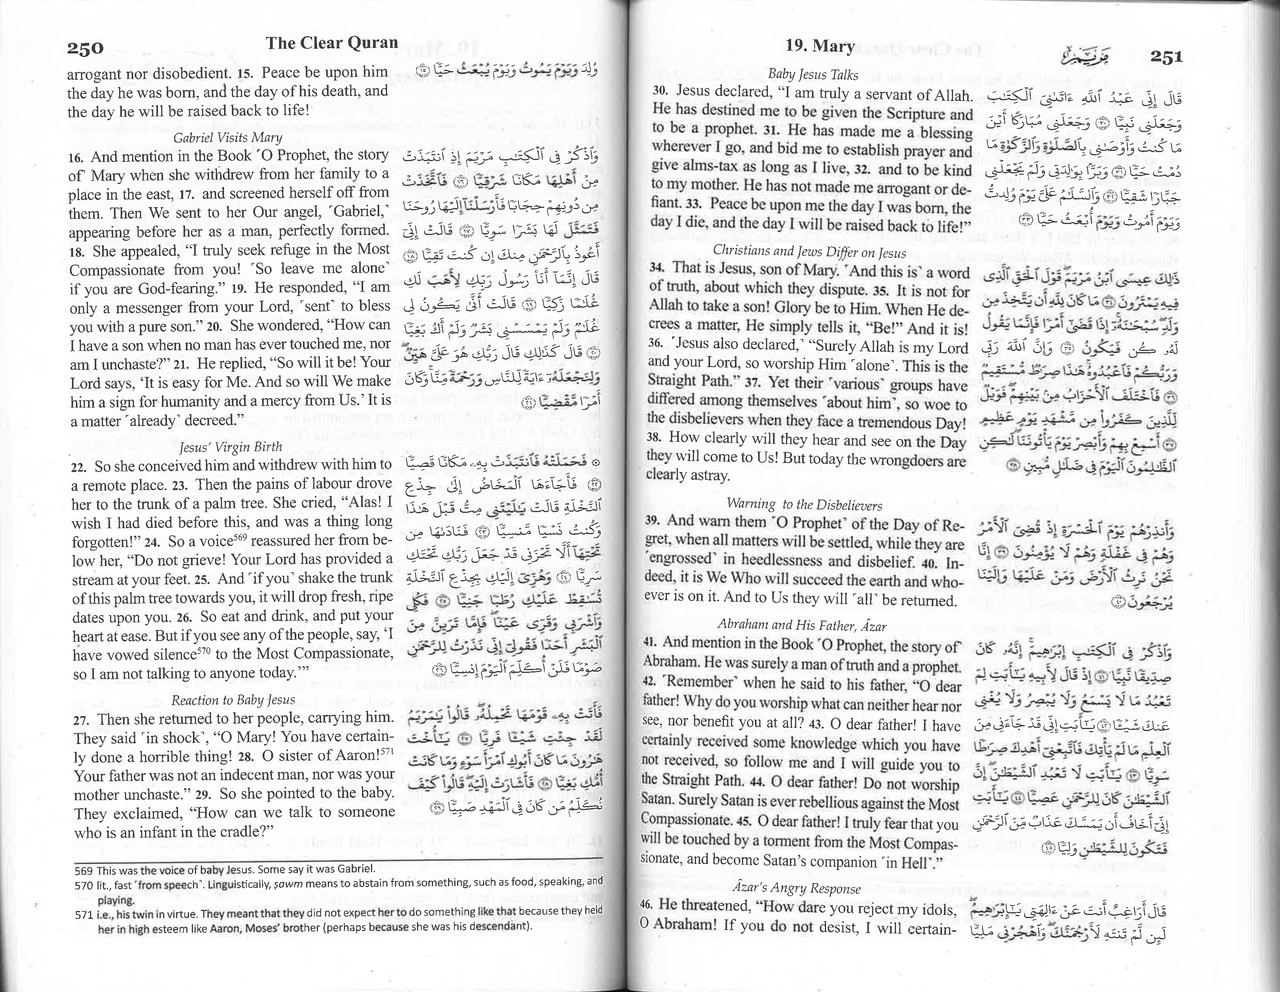 250
The Clear Quran
arrogant nor disobedient. 15. Peace be upon him
the day he was born, and the day of his death, and
the day he will be raised back to life!
وُلِدَ وَيَوْمَ يَمُوتُ وَيَوْمَ يُبْعَثُ حَيًّا ١٥
Gabriel Visits Mary
16. And mention in the Book ˹O Prophet, the story
of˺ Mary when she withdrew from her family to a
place in the east, 17. and screened herself off from
them. Then We sent to her Our angel, ˹Gabriel,˺
appearing before her as a man, perfectly formed.
18. She appealed, “I truly seek refuge in the Most
Compassionate from you! ˹So leave me alone˺
if you are God-fearing.” 19. He responded, “I am
only a messenger from your Lord, ˹sent˺ to bless
you with a pure son.” 20. She wondered, “How can
I have a son when no man has ever touched me, nor
am I unchaste?” 21. He replied, “So will it be! Your
Lord says, ‘It is easy for Me. And so will We make
him a sign for humanity and a mercy from Us.’ It is
a matter ˹already˺ decreed.”
وَٱذْكُرْ فِى ٱلْكِتَـٰبِ مَرْيَمَ إِذِ ٱنتَبَذَتْ
مِنْ أَهْلِهَا مَكَانًا شَرْقِيًّا ١٦ فَٱتَّخَذَتْ
مِن دُونِهِمْ حِجَابًا فَأَرْسَلْنَآ إِلَيْهَا رُوحَنَا
فَتَمَثَّلَ لَهَا بَشَرًا سَوِيًّا ١٧ قَالَتْ إِنِّىٓ
أَعُوذُ بِٱلرَّحْمَـٰنِ مِنكَ إِن كُنتَ تَقِيًّا ١٨
قَالَ إِنَّمَآ أَنَا۠ رَسُولُ رَبِّكِ لِأَهَبَ لَكِ
غُلَـٰمًا زَكِيًّا ١٩ قَالَتْ أَنَّىٰ يَكُونُ لِى
غُلَـٰمٌ وَلَمْ يَمْسَسْنِى بَشَرٌ وَلَمْ أَكُ بَغِيًّا
٢٠ قَالَ كَذَٰلِكِ قَالَ رَبُّكِ هُوَ عَلَىَّ هَيِّنٌ
وَلِنَجْعَلَهُۥٓ ءَايَةً لِّلنَّاسِ وَرَحْمَةً مِّنَّا وَكَانَ
أَمْرًا مَّقْضِيًّا ٢١
Jesus’ Virgin Birth
22. So she conceived him and withdrew with him to
a remote place. 23. Then the pains of labour drove
her to the trunk of a palm tree. She cried, “Alas! I
wish I had died before this, and was a thing long
forgotten!” 24. So a voice569 reassured her from be-
low her, “Do not grieve! Your Lord has provided a
stream at your feet. 25. And ˹if you˺ shake the trunk
of this palm tree towards you, it will drop fresh, ripe
dates upon you. 26. So eat and drink, and put your
heart at ease. But if you see any of the people, say, ‘I
have vowed silence570 to the Most Compassionate,
so I am not talking to anyone today.’”
۞ فَحَمَلَتْهُ فَٱنتَبَذَتْ بِهِۦ مَكَانًا قَصِيًّا
٢٢ فَأَجَآءَهَا ٱلْمَخَاضُ إِلَىٰ جِذْعِ
ٱلنَّخْلَةِ قَالَتْ يَـٰلَيْتَنِى مِتُّ قَبْلَ هَـٰذَا
وَكُنتُ نَسْيًا مَّنسِيًّا ٢٣ فَنَادَىٰهَا مِن
تَحْتِهَآ أَلَّا تَحْزَنِى قَدْ جَعَلَ رَبُّكِ تَحْتَكِ
سَرِيًّا ٢٤ وَهُزِّىٓ إِلَيْكِ بِجِذْعِ ٱلنَّخْلَةِ
تُسَـٰقِطْ عَلَيْكِ رُطَبًا جَنِيًّا ٢٥ فَكُلِى
وَٱشْرَبِى وَقَرِّى عَيْنًا فَإِمَّا تَرَيِنَّ مِنَ
ٱلْبَشَرِ أَحَدًا فَقُولِىٓ إِنِّى نَذَرْتُ لِلرَّحْمَـٰنِ
صَوْمًا فَلَنْ أُكَلِّمَ ٱلْيَوْمَ إِنسِيًّا ٢٦
Reaction to Baby Jesus
27. Then she returned to her people, carrying him.
They said ˹in shock˺, “O Mary! You have certain-
ly done a horrible thing! 28. O sister of Aaron!571
Your father was not an indecent man, nor was your
mother unchaste.” 29. So she pointed to the baby.
They exclaimed, “How can we talk to someone
who is an infant in the cradle?”
فَأَتَتْ بِهِۦ قَوْمَهَا تَحْمِلُهُۥ قَالُوا۟ يَـٰمَرْيَمُ
لَقَدْ جِئْتِ شَيْـًٔا فَرِيًّا ٢٧ يَـٰٓأُخْتَ
هَـٰرُونَ مَا كَانَ أَبُوكِ ٱمْرَأَ سَوْءٍ وَمَا كَانَتْ
أُمُّكِ بَغِيًّا ٢٨ فَأَشَارَتْ إِلَيْهِ قَالُوا۟ كَيْفَ
نُكَلِّمُ مَن كَانَ فِى ٱلْمَهْدِ صَبِيًّا ٢٩
569 This was the voice of baby Jesus. Some say it was Gabriel.
570 lit., fast ˹from speech˺. Linguistically, sawm means to abstain from something, such as food, speaking, and
playing.
571 i.e., his twin in virtue. They meant that they did not expect her to do something like that because they held
her in high esteem like Aaron, Moses’ brother (perhaps because she was his descendant).
19. Mary
مَرْيَم
251
Baby Jesus Talks
30. Jesus declared, “I am truly a servant of Allah.
He has destined me to be given the Scripture and
to be a prophet. 31. He has made me a blessing
wherever I go, and bid me to establish prayer and
give alms-tax as long as I live, 32. and to be kind
to my mother. He has not made me arrogant or de-
fiant. 33. Peace be upon me the day I was born, the
day I die, and the day I will be raised back to life!”
قَالَ إِنِّى عَبْدُ ٱللَّهِ ءَاتَىٰنِىَ ٱلْكِتَـٰبَ
وَجَعَلَنِى نَبِيًّا ٣٠ وَجَعَلَنِى مُبَارَكًا أَيْنَ
مَا كُنتُ وَأَوْصَـٰنِى بِٱلصَّلَوٰةِ وَٱلزَّكَوٰةِ مَا
دُمْتُ حَيًّا ٣١ وَبَرًّۢا بِوَٰلِدَتِى وَلَمْ يَجْعَلْنِى
جَبَّارًا شَقِيًّا ٣٢ وَٱلسَّلَـٰمُ عَلَىَّ يَوْمَ وُلِدتُّ
وَيَوْمَ أَمُوتُ وَيَوْمَ أُبْعَثُ حَيًّا ٣٣
Christians and Jews Differ on Jesus
34. That is Jesus, son of Mary. ˹And this is˺ a word
of truth, about which they dispute. 35. It is not for
Allah to take a son! Glory be to Him. When He de-
crees a matter, He simply tells it, “Be!” And it is!
36. ˹Jesus also declared,˺ “Surely Allah is my Lord
and your Lord, so worship Him ˹alone˺. This is the
Straight Path.” 37. Yet their ˹various˺ groups have
differed among themselves ˹about him˺, so woe to
the disbelievers when they face a tremendous Day!
38. How clearly will they hear and see on the Day
they will come to Us! But today the wrongdoers are
clearly astray.
ذَٰلِكَ عِيسَى ٱبْنُ مَرْيَمَ قَوْلَ ٱلْحَقِّ ٱلَّذِى
فِيهِ يَمْتَرُونَ ٣٤ مَا كَانَ لِلَّهِ أَن يَتَّخِذَ مِن
وَلَدٍ سُبْحَـٰنَهُۥٓ إِذَا قَضَىٰٓ أَمْرًا فَإِنَّمَا يَقُولُ
لَهُۥ كُن فَيَكُونُ ٣٥ وَإِنَّ ٱللَّهَ رَبِّى
وَرَبُّكُمْ فَٱعْبُدُوهُ هَـٰذَا صِرَٰطٌ مُّسْتَقِيمٌ
٣٦ فَٱخْتَلَفَ ٱلْأَحْزَابُ مِنۢ بَيْنِهِمْ فَوَيْلٌ
لِّلَّذِينَ كَفَرُوا۟ مِن مَّشْهَدِ يَوْمٍ عَظِيمٍ
٣٧ أَسْمِعْ بِهِمْ وَأَبْصِرْ يَوْمَ يَأْتُونَنَا لَـٰكِنِ
ٱلظَّـٰلِمُونَ ٱلْيَوْمَ فِى ضَلَـٰلٍ مُّبِينٍ ٣٨
Warning to the Disbelievers
39. And warn them ˹O Prophet˺ of the Day of Re-
gret, when all matters will be settled, while they are
˹engrossed˺ in heedlessness and disbelief. 40. In-
deed, it is We Who will succeed the earth and who-
ever is on it. And to Us they will ˹all˺ be returned.
وَأَنذِرْهُمْ يَوْمَ ٱلْحَسْرَةِ إِذْ قُضِىَ ٱلْأَمْرُ
وَهُمْ فِى غَفْلَةٍ وَهُمْ لَا يُؤْمِنُونَ ٣٩ إِنَّا
نَحْنُ نَرِثُ ٱلْأَرْضَ وَمَنْ عَلَيْهَا وَإِلَيْنَا
يُرْجَعُونَ ٤٠
Abraham and His Father, Âzar
41. And mention in the Book ˹O Prophet, the story of˺
Abraham. He was surely a man of truth and a prophet.
42. ˹Remember˺ when he said to his father, “O dear
father! Why do you worship what can neither hear nor
see, nor benefit you at all? 43. O dear father! I have
certainly received some knowledge which you have
not received, so follow me and I will guide you to
the Straight Path. 44. O dear father! Do not worship
Satan. Surely Satan is ever rebellious against the Most
Compassionate. 45. O dear father! I truly fear that you
will be touched by a torment from the Most Compas-
sionate, and become Satan’s companion ˹in Hell˺.”
وَٱذْكُرْ فِى ٱلْكِتَـٰبِ إِبْرَٰهِيمَ إِنَّهُۥ كَانَ
صِدِّيقًا نَّبِيًّا ٤١ إِذْ قَالَ لِأَبِيهِ يَـٰٓأَبَتِ لِمَ
تَعْبُدُ مَا لَا يَسْمَعُ وَلَا يُبْصِرُ وَلَا يُغْنِى
عَنكَ شَيْـًٔا ٤٢ يَـٰٓأَبَتِ إِنِّى قَدْ جَآءَنِى مِنَ
ٱلْعِلْمِ مَا لَمْ يَأْتِكَ فَٱتَّبِعْنِىٓ أَهْدِكَ صِرَٰطًا
سَوِيًّا ٤٣ يَـٰٓأَبَتِ لَا تَعْبُدِ ٱلشَّيْطَـٰنَ إِنَّ
ٱلشَّيْطَـٰنَ كَانَ لِلرَّحْمَـٰنِ عَصِيًّا ٤٤ يَـٰٓأَبَتِ
إِنِّىٓ أَخَافُ أَن يَمَسَّكَ عَذَابٌ مِّنَ ٱلرَّحْمَـٰنِ
فَتَكُونَ لِلشَّيْطَـٰنِ وَلِيًّا ٤٥
Âzar’s Angry Response
46. He threatened, “How dare you reject my idols,
O Abraham! If you do not desist, I will certain-
قَالَ أَرَاغِبٌ أَنتَ عَنْ ءَالِهَتِى يَـٰٓإِبْرَٰهِيمُ
لَئِن لَّمْ تَنتَهِ لَأَرْجُمَنَّكَ وَٱهْجُرْنِى مَلِيًّا